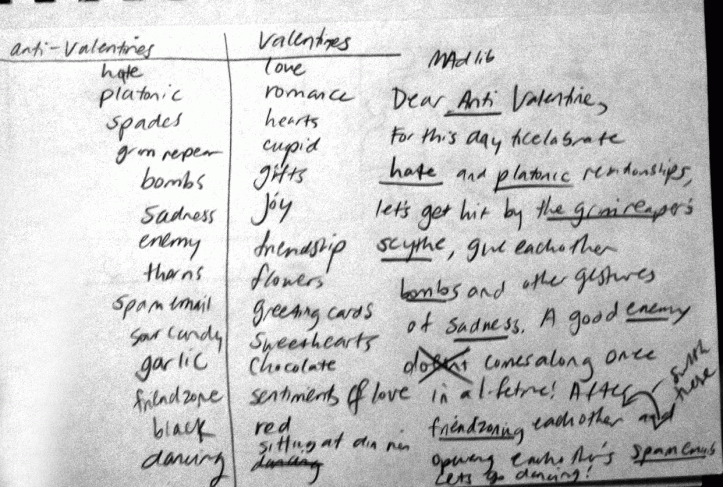 anti-Valentines Valentines
hate love
platonic romance
spades hearts
grim repear cupid
bombs gifts
Sadness Joy
enemy friendship
thorns flowers
spam email greeting cards
sour candy Sweethearts
garlic Chocolate
friendzone sentiments of love
black red
dancing sitting at dinner
dancing
MAdlib
Dear Anti Valentine,
For this day to celabrate
hate and platonic relationships,
let's get hit by the grim reaper's
scythe, give eachother
bombs and other gestures
of sadness. A good enemy
comes along once
in a lifetime! After
friendzoning each other and
opening each other's spam emails
Lets go dancing!
switch these